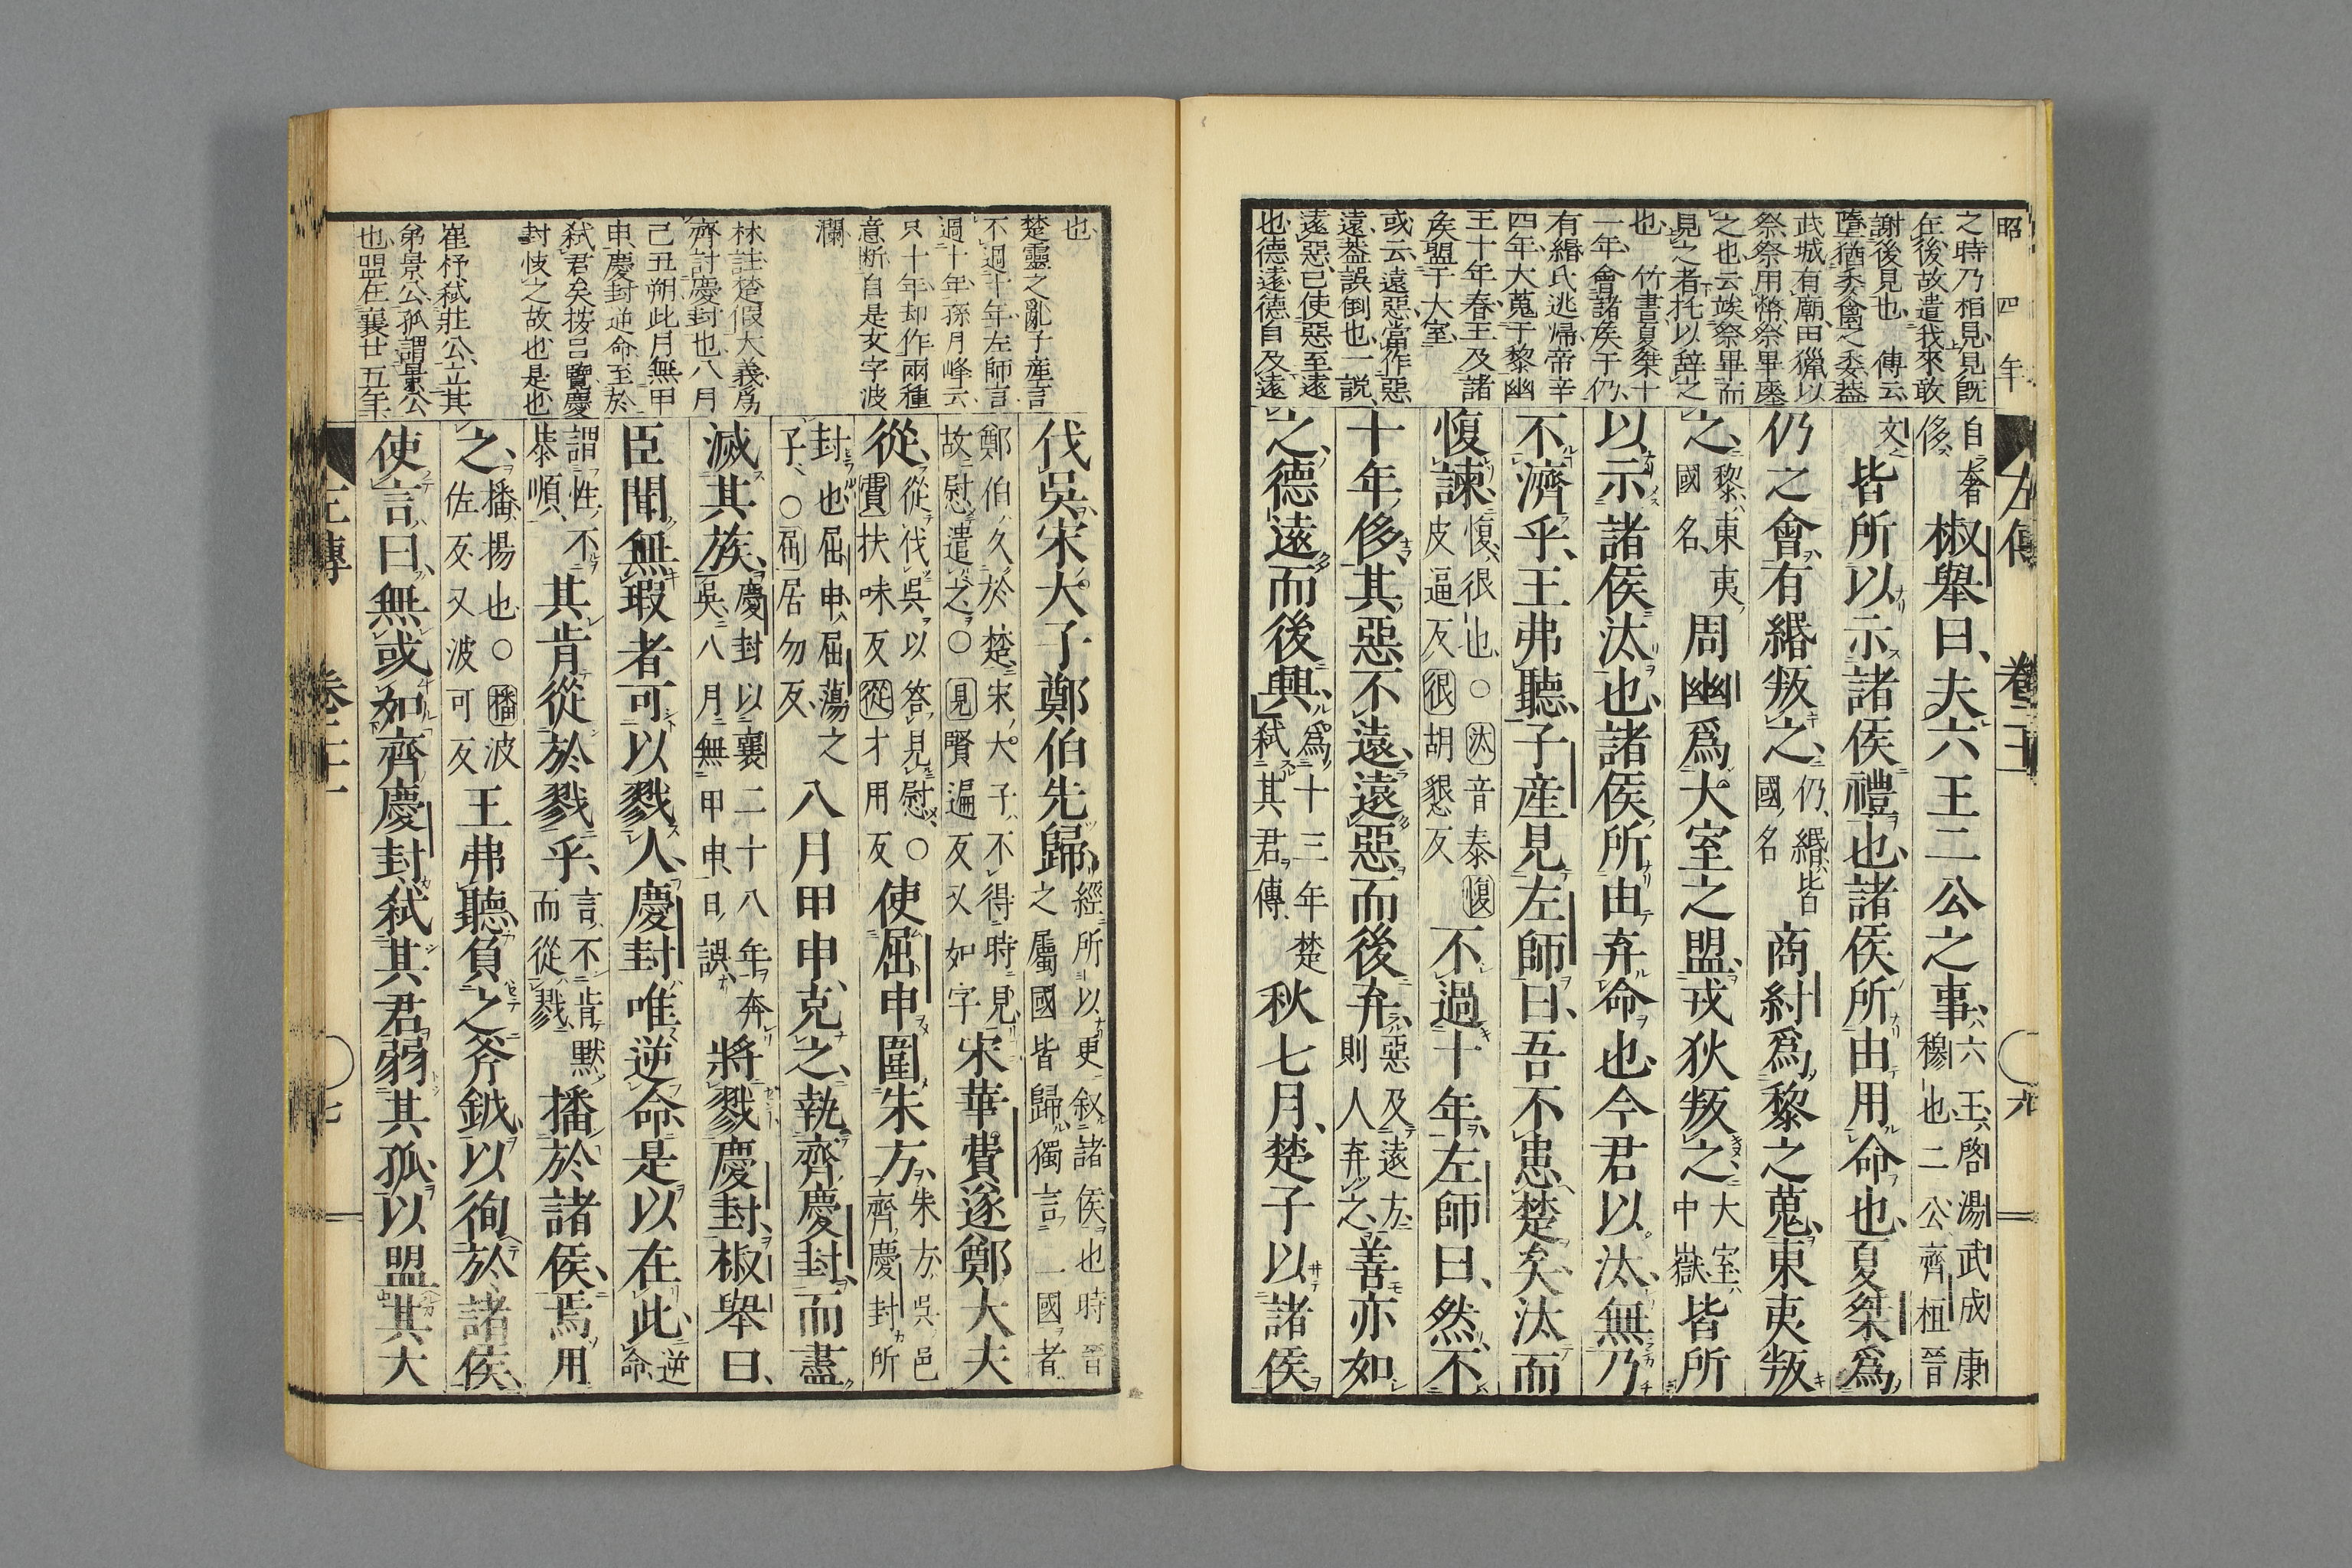 昭四年
左傳 卷二十一 六
之時乃相見見既
在後故遣我來敢
謝後見也 傳云
墮猶委禽之委蓋
武城有廟田獵以
祭祭用幣祭畢墮
之也云竢祭畢而
見之者托以辭之
也 竹書夏桀十
一年會諸侯于仍
有緡氏逃歸帝辛
四年大蒐于黎幽
王十年春王及諸
侯盟于大室
或云遠惡當作惡
遠蓋誤倒也一説
遠惡已使惡至遠
也德遠德自及遠
自奢侈椒舉曰夫六王二公之事六王啓湯武成康穆也二公齊桓晉
文皆所以示諸侯禮也諸侯所由用命也夏桀爲
仍之會有緡叛之仍緡皆國名商紂爲黎之蒐東夷叛
之黎東夷國名周幽爲大室之盟戎狄叛之大室中嶽皆所
以示諸侯汰也諸侯所由弃命也今君以汰無乃
不濟乎王弗聽子産見左師曰吾不患楚矣汰而
愎諫愎很也○汰音泰愎皮逼反很胡懇反不過十年左師曰然不
十年侈其惡不遠遠惡而後弃惡及遠方則人弃之善亦如
之德遠而後興爲十三年楚弑其君傳秋七月楚子以諸侯
也
楚靈之亂子産言
不過十年左師言
過十年孫月峰云
只十年却作兩種
意断自是文字波
瀾
林註楚假大義爲
齊討慶封也八月
己丑朔此月無甲
申慶封逆命至於
弑君矣按呂覽慶
封忮之故也是也
崔杼弑莊公立其
弟景公孤謂景公
也盟在襄廿五年
伐吳宋大子鄭伯先歸經所以更叙諸侯也時晉之屬國皆歸獨言二國者
鄭伯久於楚宋大子不得時見故慰遣之○見賢遍反又如字宋華費遂鄭大夫
從從伐吳以答見慰○費扶味反從才用反使屈申圍朱方朱方吳邑齊慶封所
封也屈申屈蕩之子○屈居勿反八月甲申克之執齊慶封而盡
滅其族慶封以襄二十八年奔吳八月無甲申日誤將戮慶封椒舉曰
臣聞無瑕者可以戮人慶封唯逆命是以在此逆命
謂性不恭順其肯從於戮乎言不肯默而從戮播於諸侯焉用
之播揚也○播波佐反又波可反王弗聽負之斧鉞以徇於諸侯
使言曰無或如齊慶封弑其君弱其孤以盟其大
左傳 卷二十一 七